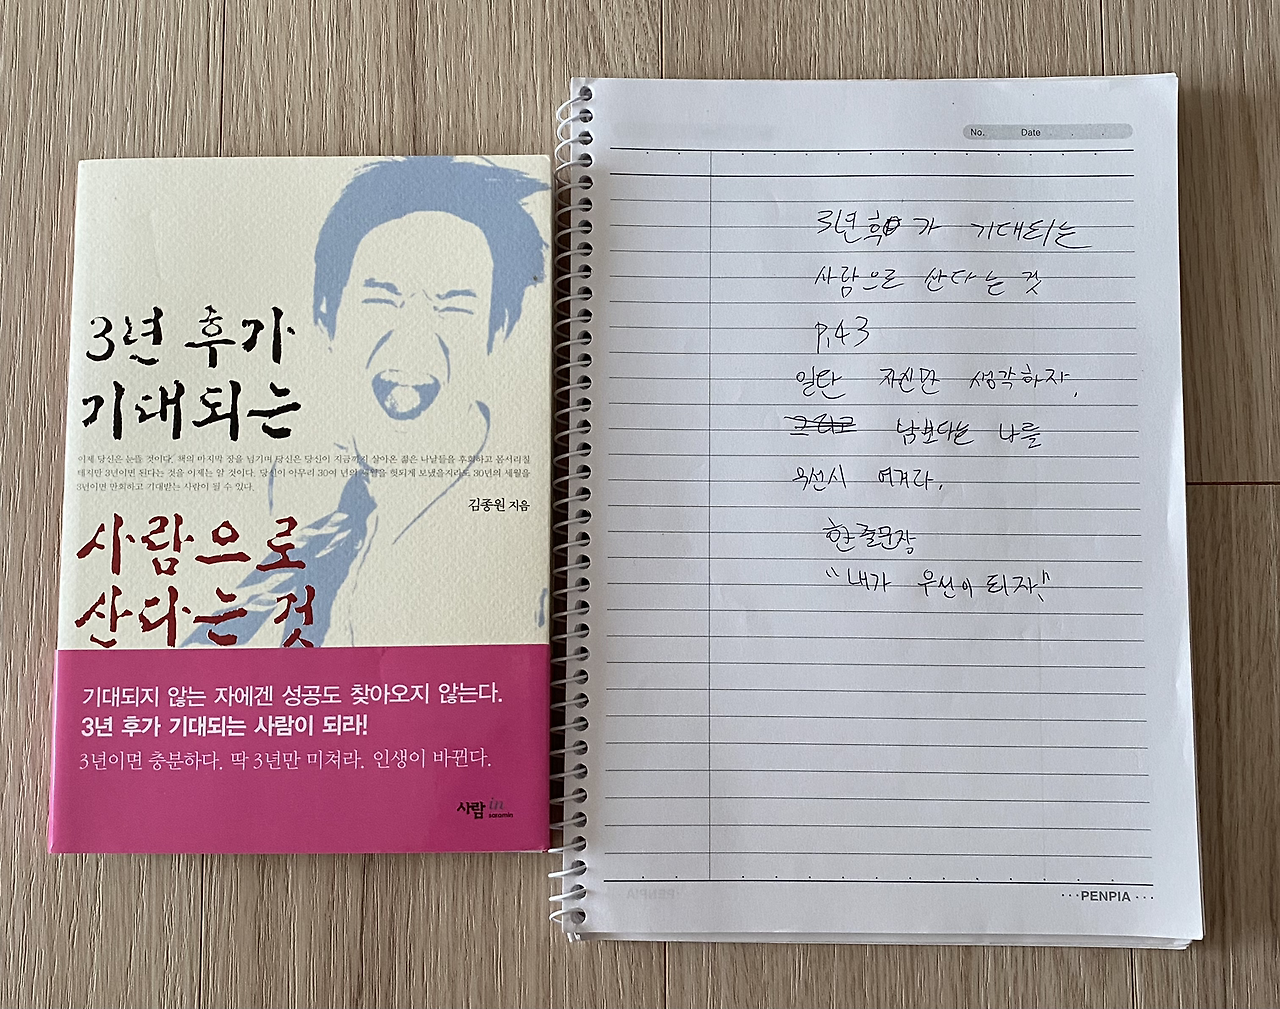 3년 후가
기대되는
이제 당신은 눈뜰 것이다. 책의 마지막 장을 넘기며 당신은 당신이 지금까지 살아온 젊은 나날들을 후회하고 몸서리칠
테지만 3년이면 된다는 것을 이제는 알 것이다. 당신이 아무리 30여 년의 세월을 헛되게 보냈을지라도 30년의 세월을
3년이면 만회하고 기대받는 사람이 될 수 있다.
김종원 지음
사람으로
산다는 것
기대되지 않는 자에겐 성공도 찾아오지 않는다.
3년 후가 기대되는 사람이 되라!
3년이면 충분하다. 딱 3년만 미쳐라. 인생이 바뀐다.
사람in
saramin
No. Date
3년 후가 기대되는
사람으로 산다는 것
P.43
일단 자신만 생각하자.
남보다는 나를
우선시 여겨라.
한줄문장
"내가 우선이 되자."
PENPIA